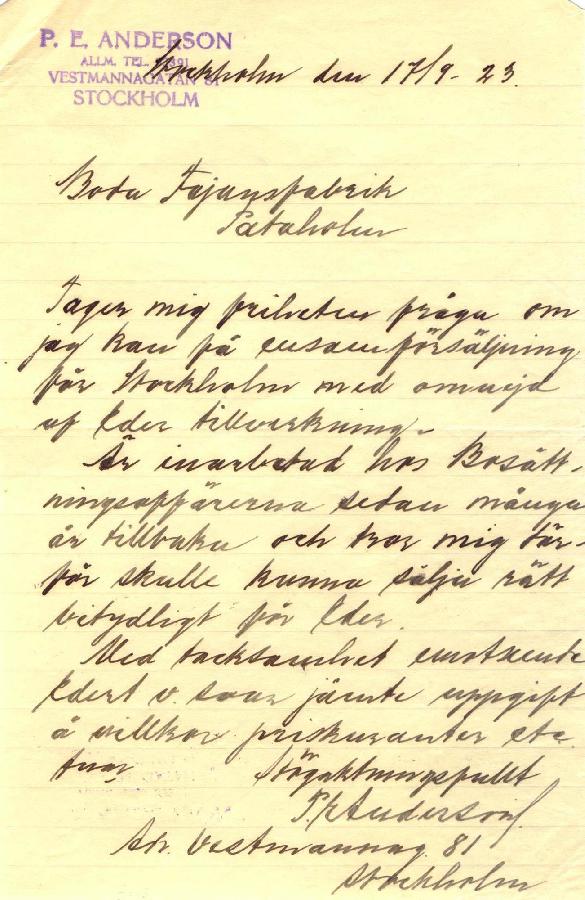 P. E. ANDERSON
ALLM. TEL.
VESTMANNAGATAN 81
STOCKHOLM
Stockholm den 17/9 - 23.
Boda Fajansfabrik
Pataholm
Tager mig friheten fråga om
jag kan få ensamförsäljning
för Stockholm med omnejd
af Eder tillverkning.
Är inarbetad hos Bosätt-
ningsaffärerna sedan många
år tillbaka och tror mig där-
för skulle kunna sälja rätt
betydligt för Eder.
Med tacksamhet emotseende
Edert v. svar jämte uppgift
å villkor priskuranter etc
Högaktningsfullt
P. E. Anderson
Adr. Vestmannag. 81
Stockholm